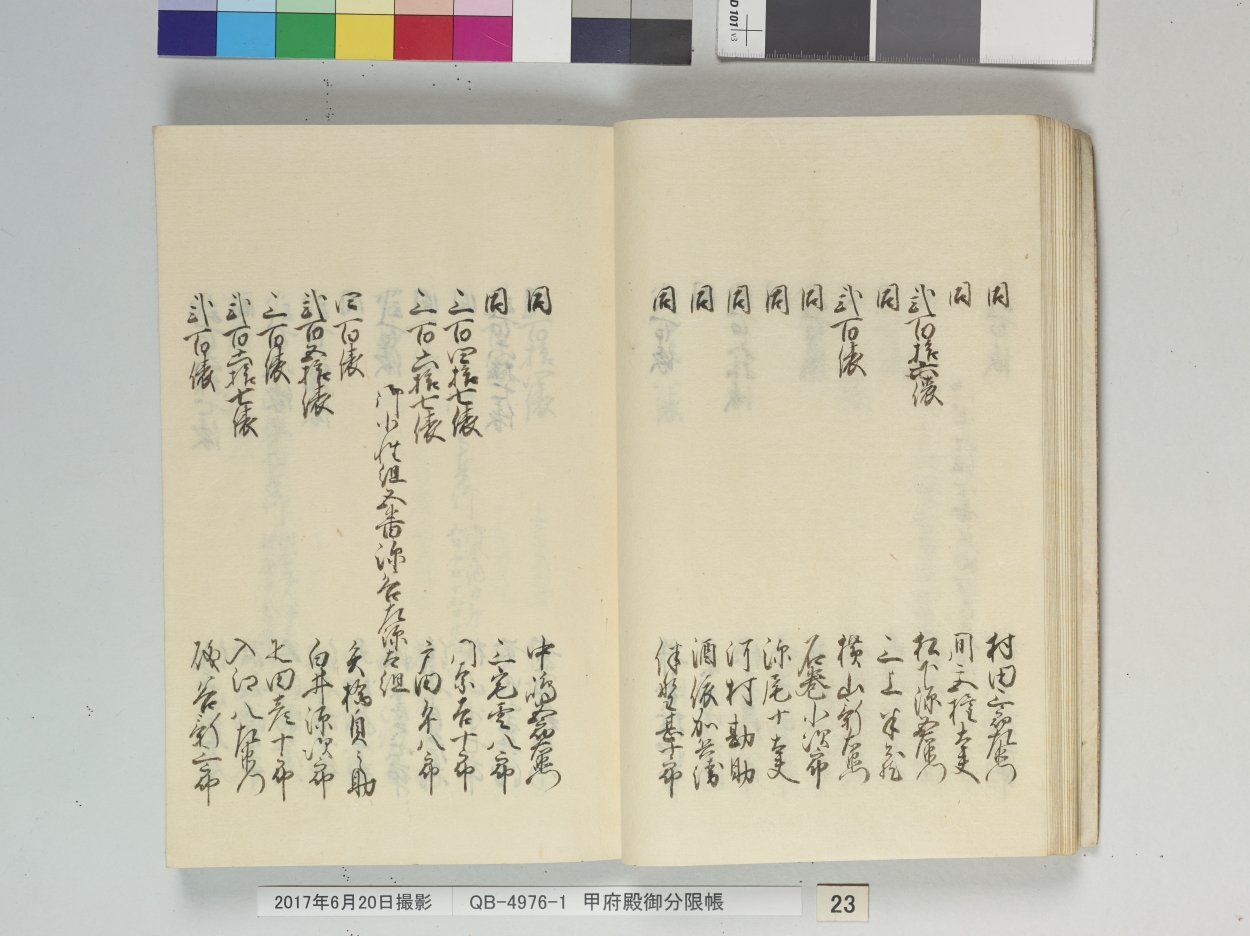 同 村田三郎左衛門
同 間宮権太夫
弐百拾六俵 松下源五右衛門
同 三上半兵衛
弐百俵 横山新左衛門
同 石巻小次郎
同 深尾十太夫
同 河村勘助
同 酒依加兵衛
同 伴野甚十郎
同 中嶋五郎左衛門
同 三宅雲八郎
三百四拾七俵 門奈石十郎
三百六拾七俵 戸田半八郎
御小性組五番深谷左源太組
四百俵 矢橋貞之助
弐百五拾俵 白井源次郎
三百俵 七田彦十郎
弐百六拾七俵 入江八左衛門
弐百俵 谷新三郎
2017年6月20日撮影 QB-4976-1 甲府殿御分限帳
23
D 101 v3